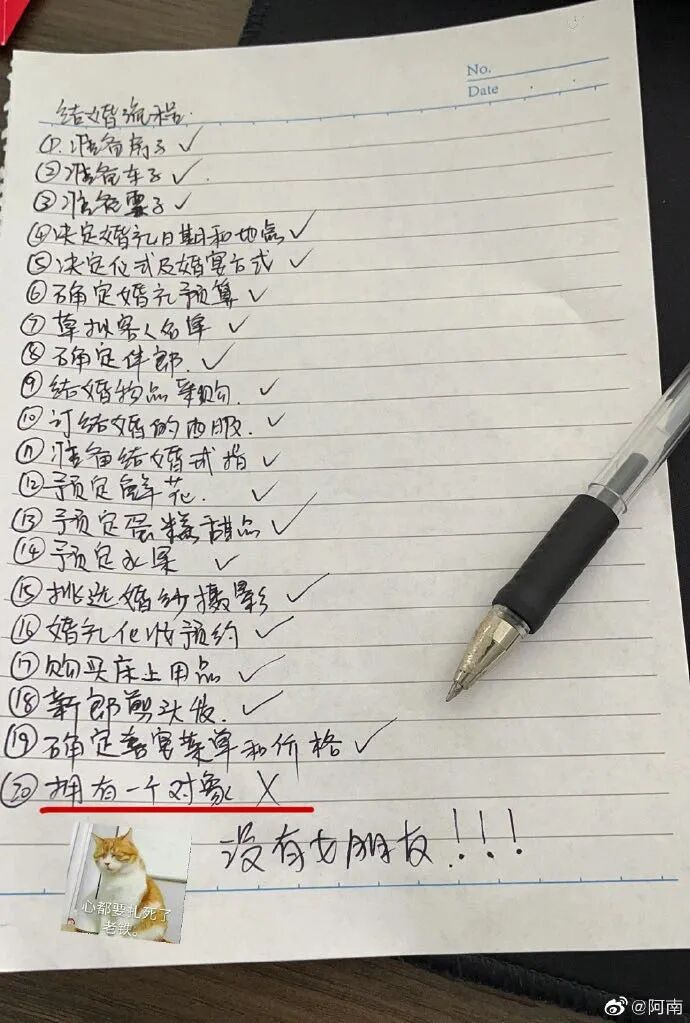 No.
Date
结婚流程
①.准备房子 ✓
②准备车子 ✓.
③准备票子 ✓
④决定婚礼日期和地点 ✓
⑤决定仪式及婚宴方式 ✓
⑥确定婚礼预算 ✓
⑦草拟客人名单 ✓
⑧确定伴郎. ✓
⑨结婚物品采购. ✓
⑩订结婚的西服. ✓
⑪准备结婚戒指 ✓
⑫预定鲜花. ✓
⑬预定蛋糕甜品 ✓
⑭预定水果 ✓
⑮挑选婚纱摄影 ✓
⑯婚礼化妆预约 ✓
⑰购买床上用品 ✓
⑱新郎剪头发. ✓
⑲确定喜宴菜单和价格 ✓
⑳拥有一个对象 X
没有女朋友!!!
心都要扎死了
老铁。
@阿南